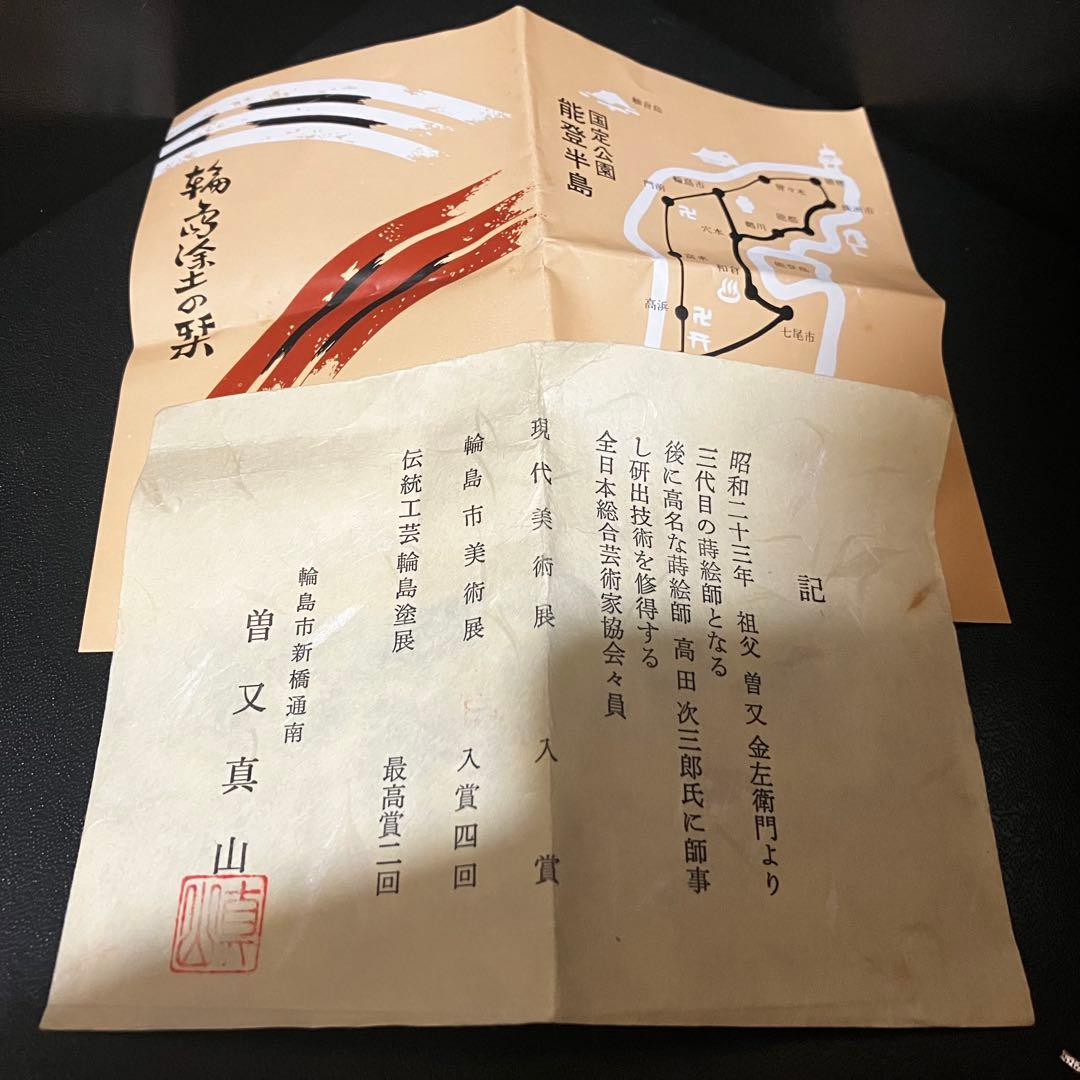 輪島塗の栞
国定公園
能登半島
輪島市
門前
曽々木
穴水
鶴川
和倉
高浜
七尾市
記
昭和二十三年 祖父 曽又 金左衛門より
三代目の蒔絵師となる
後に高名な蒔絵師 高田 次三郎氏に師事
し研出技術を修得する
全日本総合芸術家協会々員
現代美術展 入賞
輪島市美術展 入賞四回
伝統工芸輪島塗展 最高賞二回
輪島市新橋通南
曽又真山